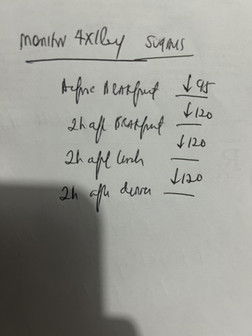 monitor 4x/day sugars
before Breakfast ↓95
2h aft Breakfast ↓120
2h aft lunch ↓120
2h aft dinner ↓120